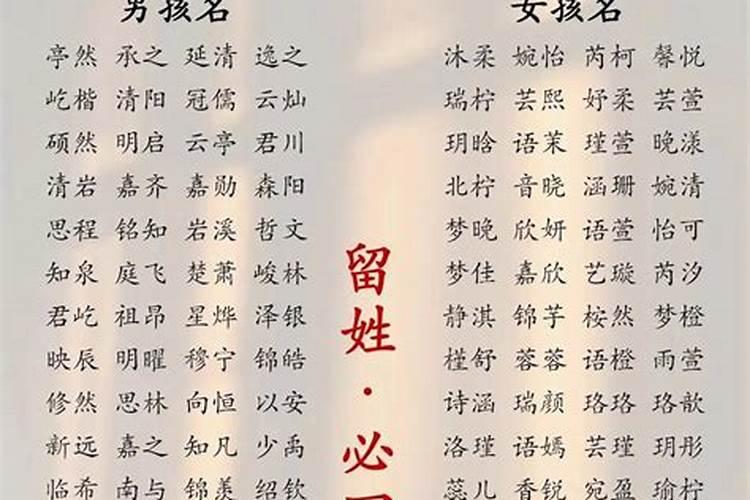 男孩名
亭然 承之 延清 逸之
屹楷 清阳 冠儒 云灿
硕然 明启 云亭 君川
清岩 嘉齐 嘉勋 森阳
思程 铭知 岩溪 哲文
知泉 庭飞 楚萧 峻林
君屹 祖昂 星烨 泽银
映辰 明曜 穆宁 锦皓
修然 思林 向恒 以安
新远 嘉之 知凡 少禹
临希 南与 锦羡 绍钦
留姓·必
女孩名
沐柔 婉怡 芮柯 馨悦
瑞柠 芸熙 妤柔 芸萱
玥晗 语茉 瑾萱 晚漾
北柠 音晓 涵珊 婉清
梦晚 欣妍 语萱 怡可
梦佳 嘉欣 艺璇 芮汐
静淇 锦芋 桉然 梦橙
槿舒 蓉蓉 语橙 雨萱
诗涵 瑞颜 珞珞 珞歆
洛瑾 语嫣 芸瑾 玥彤
蕊儿 香锐 宛盈 瑜柠